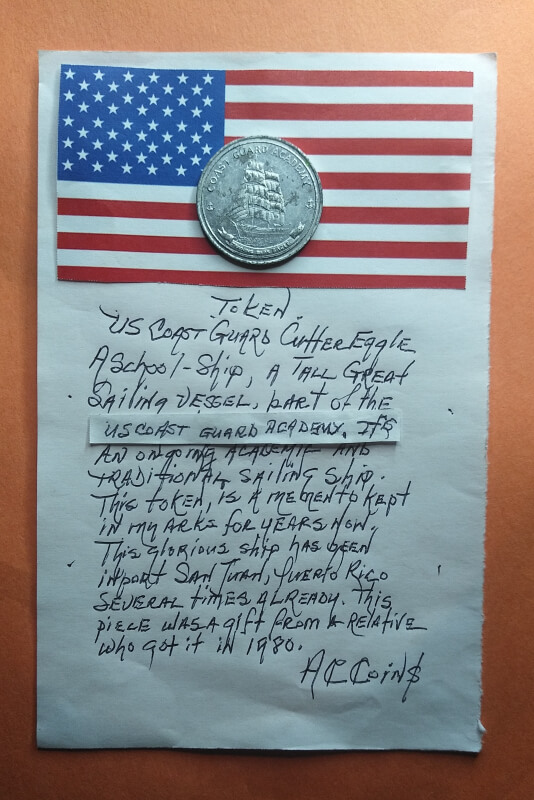 COAST GUARD ACADEMY
TOKEN.
US COAST GUARD CUTTER EAGLE
A School-Ship, A TALL GREAT
SAILING VESSEL, part of the
US COAST GUARD ACADEMY. IT'S
AN ONGOING ACADEMIC AND
TRADITIONAL SAILING Ship.
This token, is A MEMENTO KEPT
IN MY ARKS FOR YEARS NOW.
This glorious ship has been
in port SAN JUAN, PUERTO RICO
SEVERAL TIMES ALREADY. This
piece was a gift from a RELATIVE
who got it in 1980.
ACCoin$